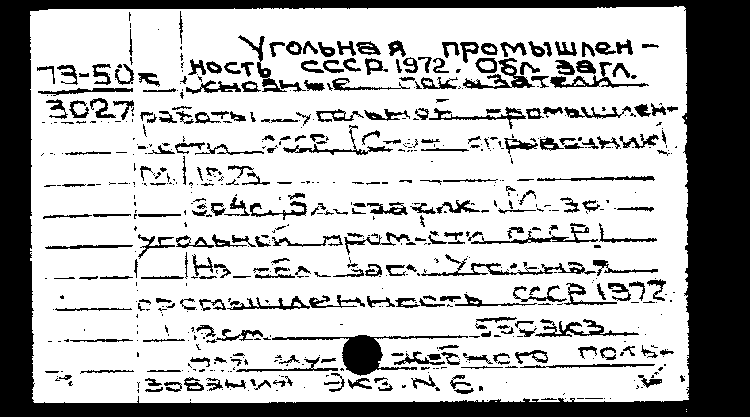 Угольная промышлен-
ность СССР. 1972. Обл. загл.
73-50
Основные показатели
3027
работы угольной промышлен-
ности СССР. [Стат. справочник]
М., 1973
304с., 5л. (М-во
угольной пром-сти СССР)
На обл. загл.: Угольная
промышленность СССР 1972
550экз.
для слу- жебного поль-
зования Экз. N 6.